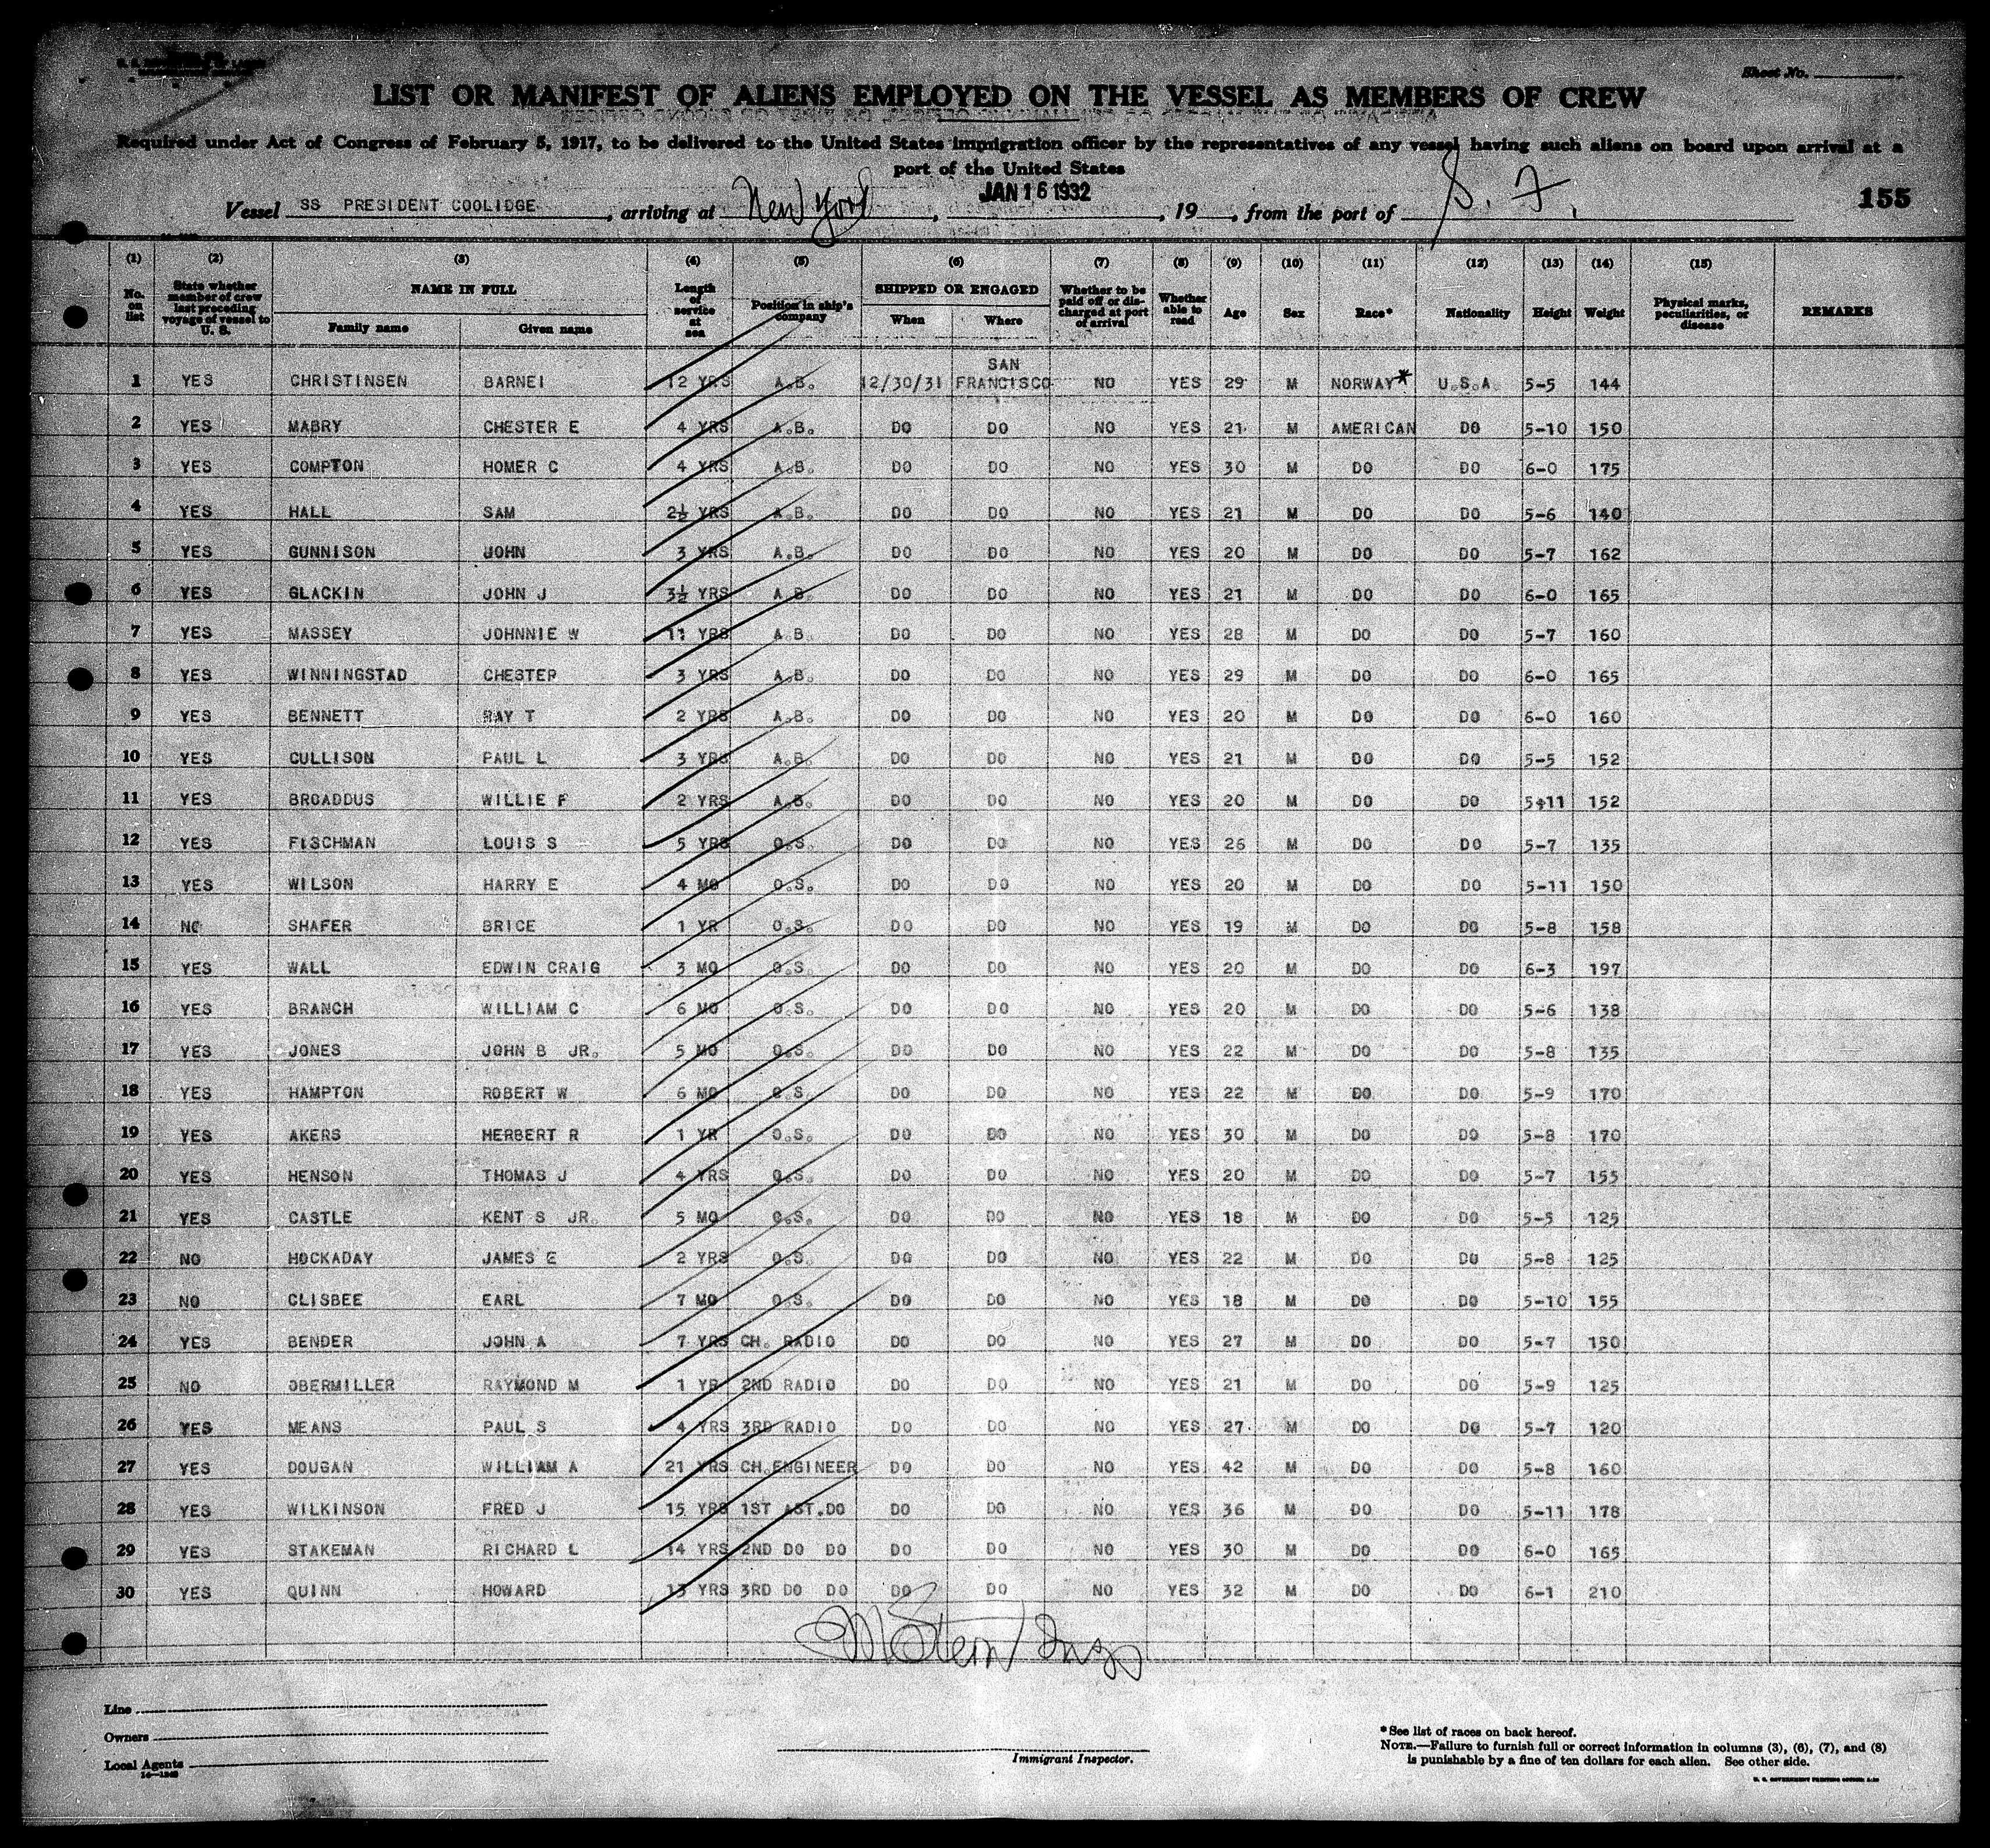 Sheet No.
LIST OR MANIFEST OF ALIENS EMPLOYED ON THE VESSEL AS MEMBERS OF CREW
Required under Act of Congress of February 5, 1917, to be delivered to the United States immigration officer by the representatives of any vessel having such aliens on board upon arrival at a
port of the United States
Vessel SS PRESIDENT COOLIDGE, arriving at New York, JAN 16 1932, 19, from the port of S. F. 155
(1) (2) (3) (4) (5) (6) (7) (8) (9) (10) (11) (12) (13) (14) (15)
No. on list State whether member of crew last preceding voyage of vessel to U. S. NAME IN FULL Family name Given name Length of service at sea Position in ship's company SHIPPED OR ENGAGED When Where Whether to be paid off or discharged at port of arrival Whether able to read Age Sex Race* Nationality Height Weight Physical marks, peculiarities, or disease REMARKS
1 YES CHRISTINSEN BARNEI 12 YRS A.B. 12/30/31 SAN FRANCISCO NO YES 29 M NORWAY* U.S.A. 5-5 144
2 YES MABRY CHESTER E 4 YRS A.B. DO DO NO YES 21 M AMERICAN DO 5-10 150
3 YES COMPTON HOMER C 4 YRS A.B. DO DO NO YES 30 M DO DO 6-0 175
4 YES HALL SAM 2½ YRS A.B. DO DO NO YES 21 M DO DO 5-6 140
5 YES GUNNISON JOHN 3 YRS A.B. DO DO NO YES 20 M DO DO 5-7 162
6 YES GLACKIN JOHN J 3½ YRS A.B. DO DO NO YES 21 M DO DO 6-0 165
7 YES MASSEY JOHNNIE W 11 YRS A.B. DO DO NO YES 28 M DO DO 5-7 160
8 YES WINNINGSTAD CHESTER 3 YRS A.B. DO DO NO YES 29 M DO DO 6-0 165
9 YES BENNETT RAY T 2 YRS A.B. DO DO NO YES 20 M DO DO 6-0 160
10 YES CULLISON PAUL L 3 YRS A.B. DO DO NO YES 21 M DO DO 5-5 152
11 YES BROADDUS WILLIE F 2 YRS A.B. DO DO NO YES 20 M DO DO 5-11 152
12 YES FISCHMAN LOUIS S 5 YRS O.S. DO DO NO YES 26 M DO DO 5-7 135
13 YES WILSON HARRY E 4 MO O.S. DO DO NO YES 20 M DO DO 5-11 150
14 NO SHAFER BRICE 1 YR O.S. DO DO NO YES 19 M DO DO 5-8 158
15 YES WALL EDWIN CRAIG 3 MO O.S. DO DO NO YES 20 M DO DO 6-3 197
16 YES BRANCH WILLIAM C 6 MO O.S. DO DO NO YES 20 M DO DO 5-6 138
17 YES JONES JOHN B JR. 5 MO O.S. DO DO NO YES 22 M DO DO 5-8 135
18 YES HAMPTON ROBERT W 6 MO O.S. DO DO NO YES 22 M DO DO 5-9 170
19 YES AKERS HERBERT R 1 YR O.S. DO DO NO YES 30 M DO DO 5-8 170
20 YES HENSON THOMAS J 4 YRS O.S. DO DO NO YES 20 M DO DO 5-7 155
21 YES CASTLE KENT S JR. 5 MO O.S. DO DO NO YES 18 M DO DO 5-5 125
22 NO HOCKADAY JAMES E 2 YRS O.S. DO DO NO YES 22 M DO DO 5-8 125
23 NO CLISBEE EARL 7 MO O.S. DO DO NO YES 18 M DO DO 5-10 155
24 YES BENDER JOHN A 7 YRS CH. RADIO DO DO NO YES 27 M DO DO 5-7 150
25 NO OBERMILLER RAYMOND M 1 YR 2ND RADIO DO DO NO YES 21 M DO DO 5-9 125
26 YES MEANS PAUL S 4 YRS 3RD RADIO DO DO NO YES 27 M DO DO 5-7 120
27 YES DOUGAN WILLIAM A 21 YRS CH.ENGINEER DO DO NO YES 42 M DO DO 5-8 160
28 YES WILKINSON FRED J 15 YRS 1ST AST.DO DO DO NO YES 36 M DO DO 5-11 178
29 YES STAKEMAN RICHARD L 14 YRS 2ND DO DO DO DO NO YES 30 M DO DO 6-0 165
30 YES QUINN HOWARD 13 YRS 3RD DO DO DO DO NO YES 32 M DO DO 6-1 210
M Stern Insp
Line
Owners
Local Agents
Immigrant Inspector.
*See list of races on back hereof.
NOTE.—Failure to furnish full or correct information in columns (3), (6), (7), and (8)
is punishable by a fine of ten dollars for each alien. See other side.